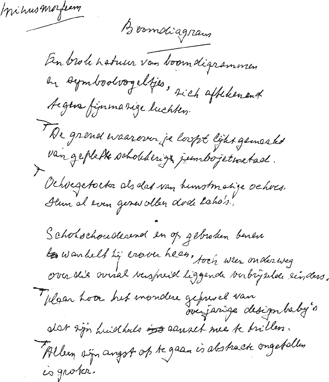 minusmorfeem
Boomdiagram
Een brole natuur van boomdiagrammen
en symboolvogeltjes, zich aftekenent
tegen fijnmazige luchten.
De grond waarover je loopt lijkt gemaakt
van geplette schobberige jumbojetmetaal.
als dat van kunstmatige ochoes.
al even gezwollen dode Laho's.
Schokschouderend en op gebroken benen
wankelt hij erover heen, toch weer onderweg
over die overal verspreid liggende verbrijzelde cinders.
Maar hoor het mondere gepiesel van
overjarige designbaby's
dat zijn huidhuls aanzet mee te trillen.
Alleen zijn angst op te gaan in abstracte ongetallen
is groter.